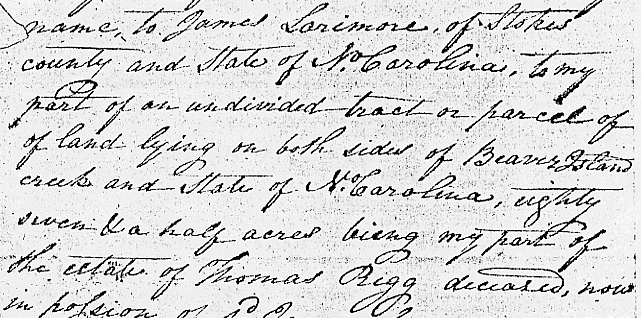 name, to James Larimore, of Stokes
county and State of No. Carolina, to my
part of an undivided tract or parcel of
of land lying on both sides of Beaver Island
creek and State of No. Carolina, eighty
seven & a half acres being my part of
the estate of Thomas Rigg deceased, now
in possion of sd.